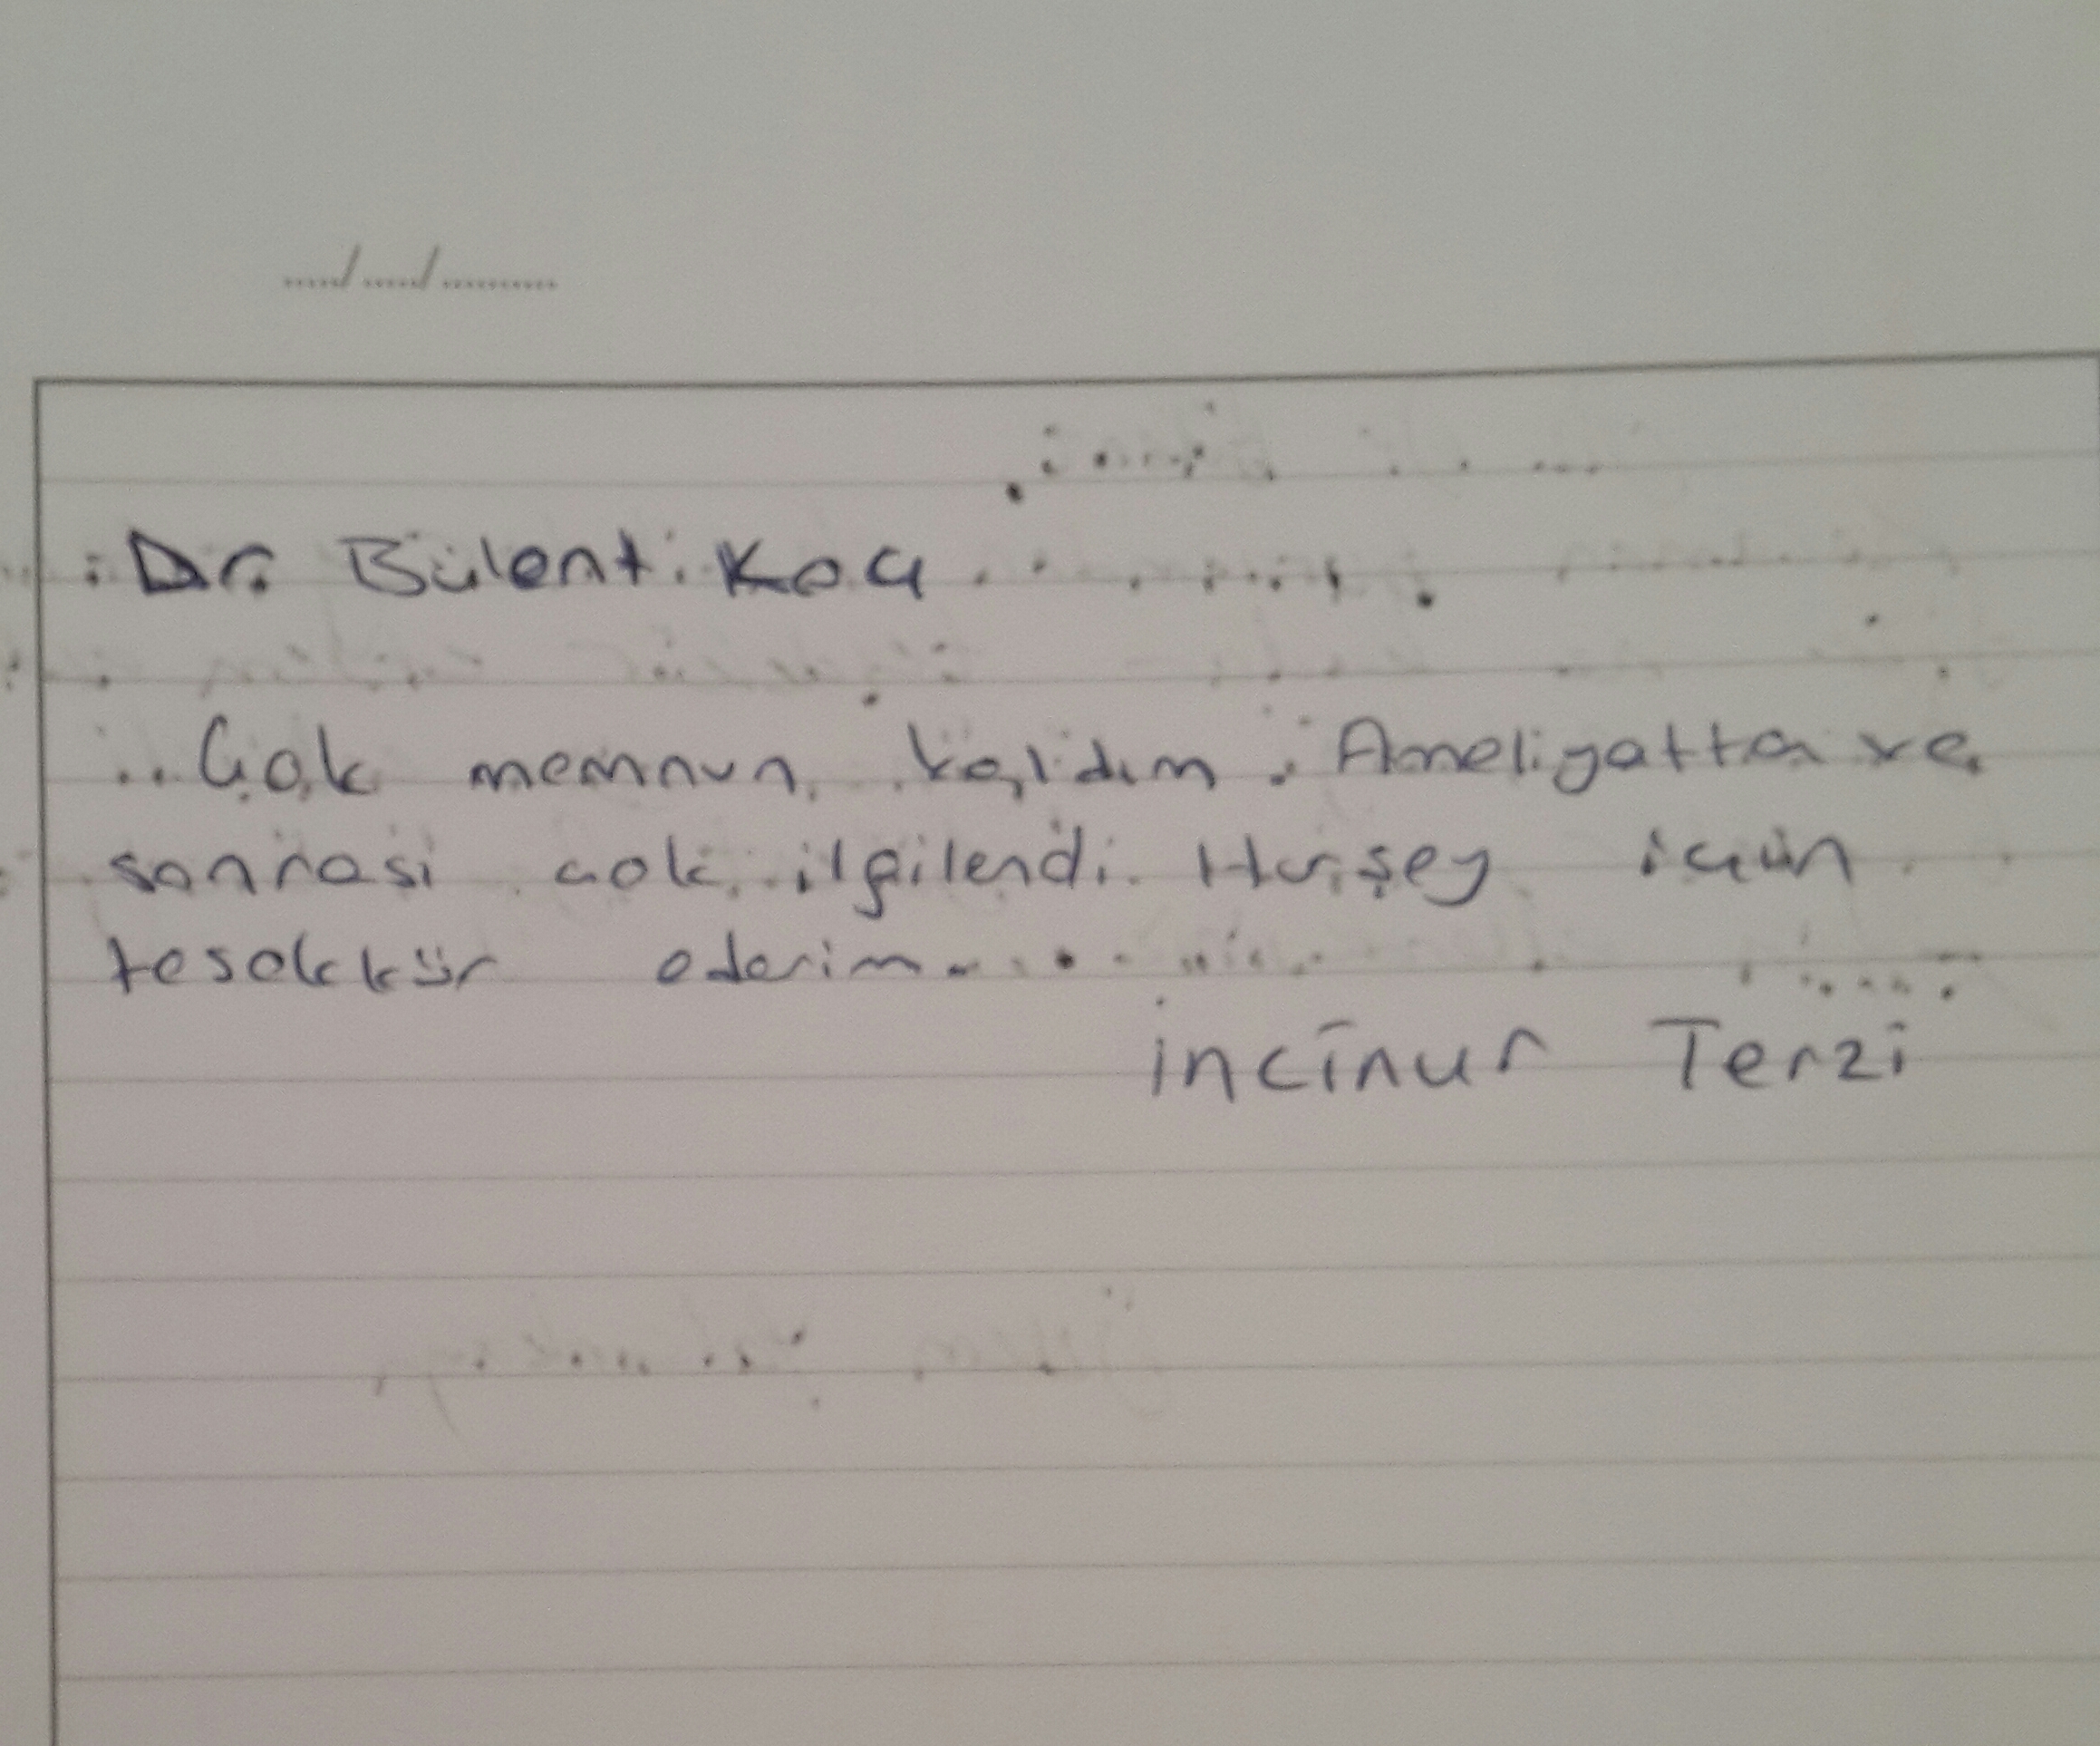 ..../..../..........
Dr. Bülent Koç
Çok memnun kaldım. Ameliyatta ve
sonrası çok ilgilendi. Herşey için
tesekkür ederim.
incinur Terzi